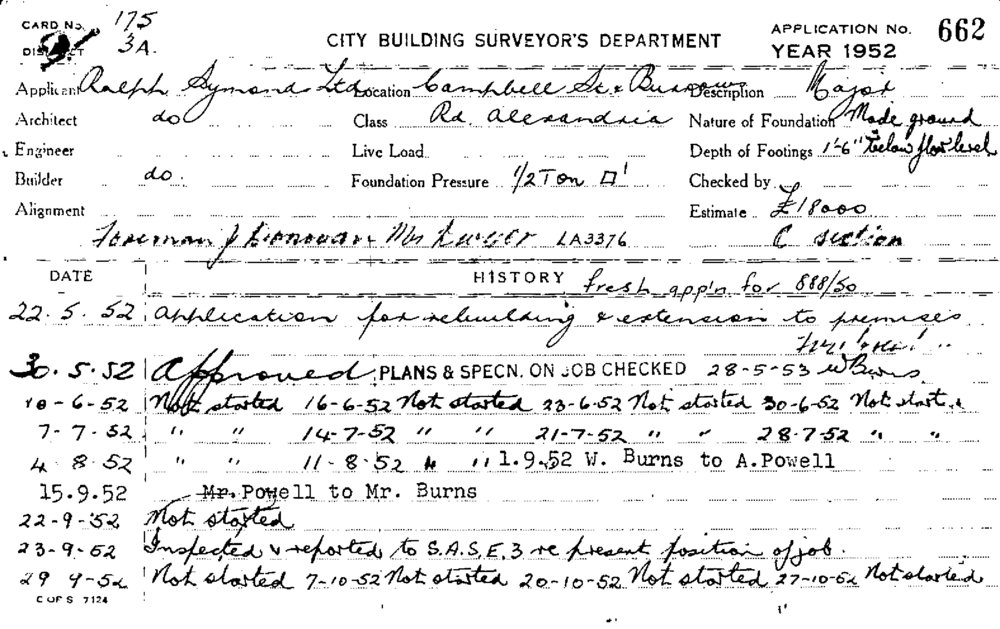 CARD No. 175
DISTRICT 3A.
CITY BUILDING SURVEYOR'S DEPARTMENT
APPLICATION No. 662
YEAR 1952
Applicant Ralph Symonds Ltd Location Campbell St & Burrows Description Major
Architect do Class Rd. Alexandria Nature of Foundation Made ground
Engineer Live Load Depth of Footings 1'-6" below floor level
Builder do. Foundation Pressure 1/2 Ton □' Checked by
Alignment Estimate £18000
Foreman J Donovan Mr LA3376 C section
DATE HISTORY fresh app'n for 888/50
22.5.52 Application for rebuilding & extension to premises
30.5.52 Approved. PLANS & SPECN. ON JOB CHECKED 28-5-53 W Burns
10-6-52 Not started 16-6-52 Not started 23-6-52 Not started 30-6-52 Not started
7-7-52 " " 14-7-52 " " 21-7-52 " " 28-7-52 " "
4.8.52 " " 11-8-52 " " 1.9.52 W. Burns to A.Powell
15.9.52 Mr. Powell to Mr. Burns
22-9-52 Not started
23-9-52 Inspected & reported to S.A.S.E.3 re present position of job.
29 9-52 Not started 7-10-52 Not started 20-10-52 Not started 27-10-52 Not started
C OF S 7124